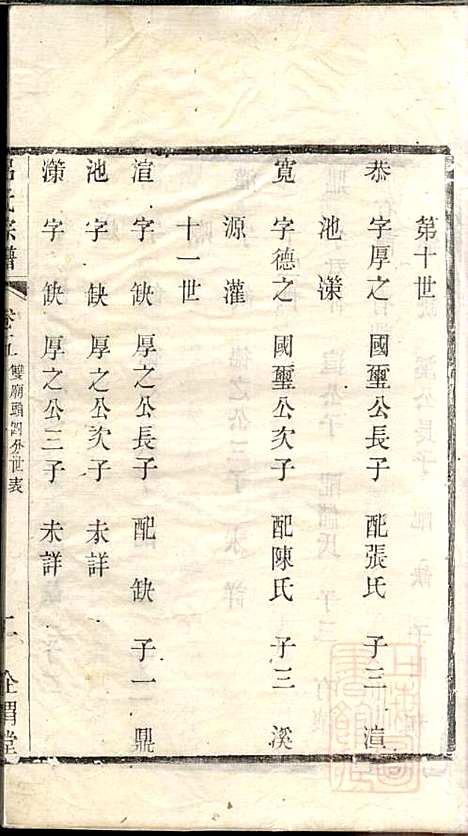 第十世
恭 字厚之 國璽公長子 配張氏 子三 渲
池 濴
寬 字德之 國璽公次子 配陳氏 子三 溪
源 灌
十一世
渲 字 缺 厚之公長子 配 缺 子一 鼎
池 字 缺 厚之公次子 未詳
濴 字 缺 厚之公三子 未詳
呂氏宗譜
雙廟頭四分世表